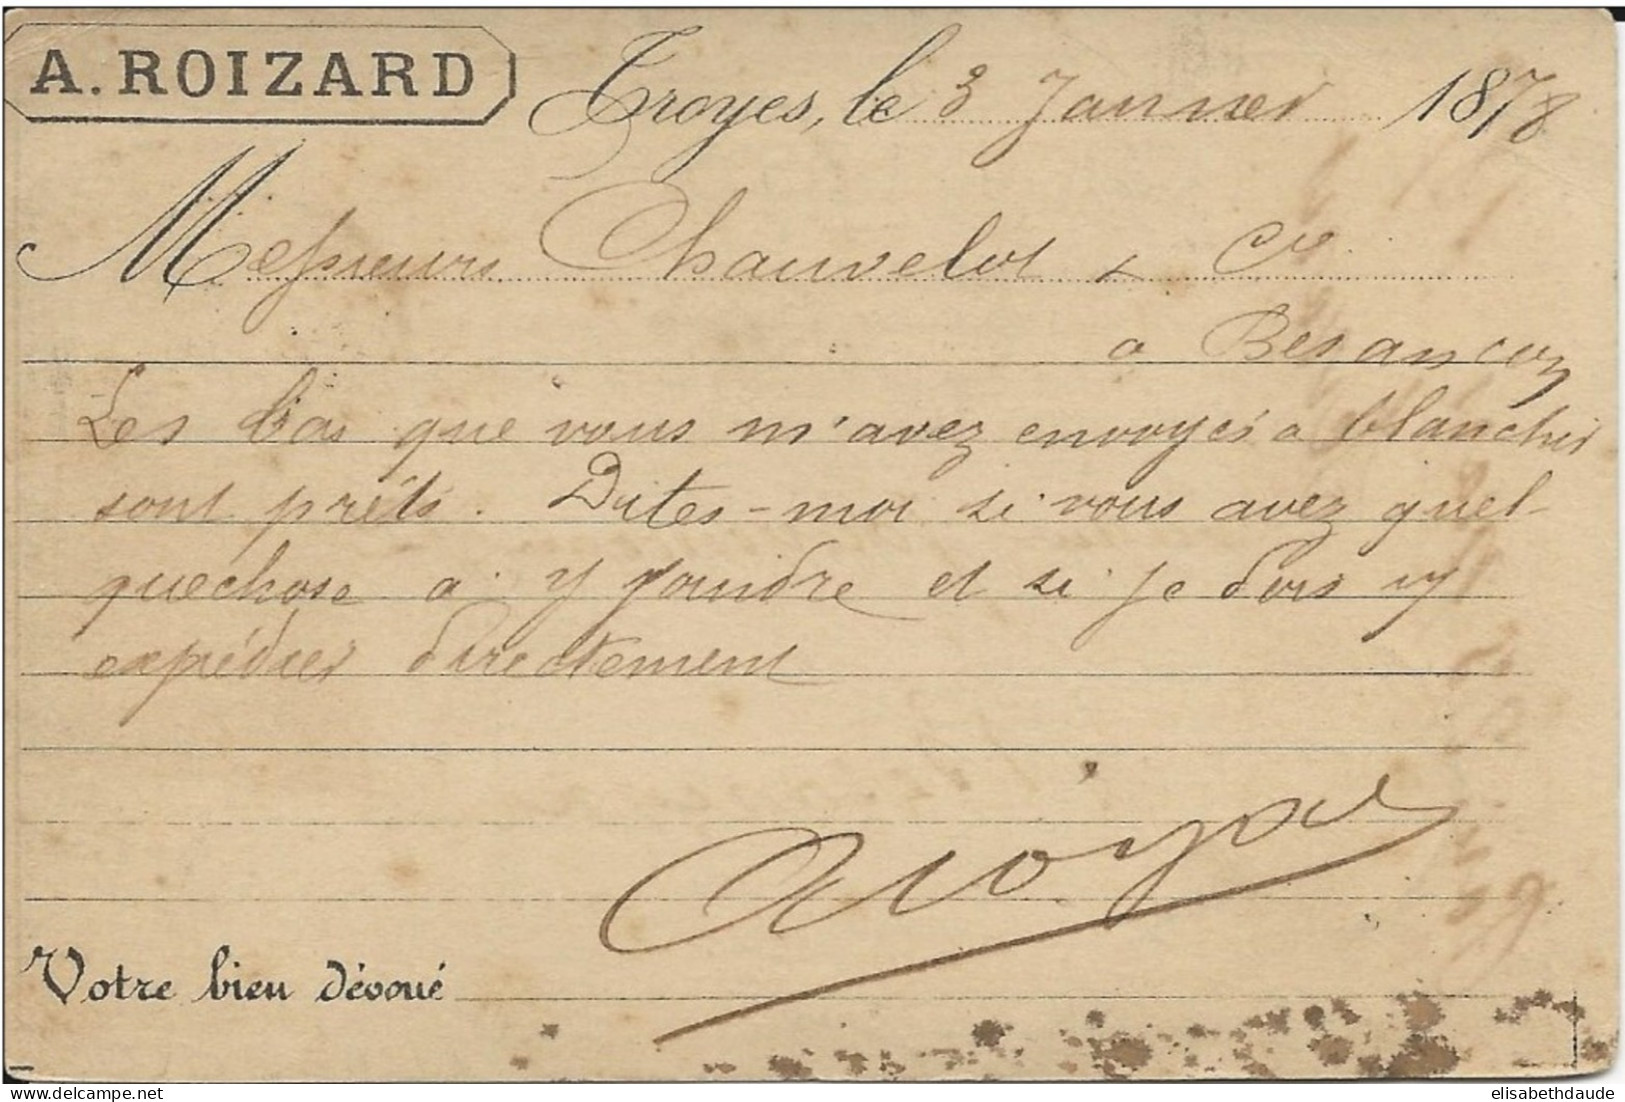 A. ROIZARD
Troyes, le 3 Janvier 1878
Messieurs Chauvelot & Cie
a Besançon
Les bas que vous m'avez envoyés a blanchir
sont prêts. Dites-moi si vous avez quel-
quechose a y joindre et si je dois y
expédier directement
ARoizard
Votre bien dévoué
delcampe.net
elisabethdaude